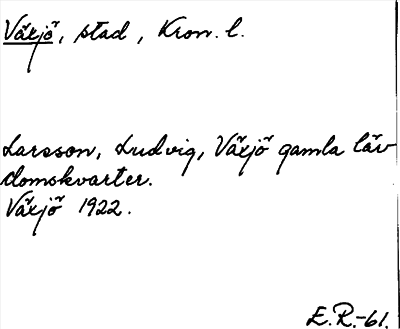 Växjö, stad, Kron. l.
Larsson, Ludvig, Växjö gamla lär
domskvarter.
Växjö 1922.
E.R.-61.